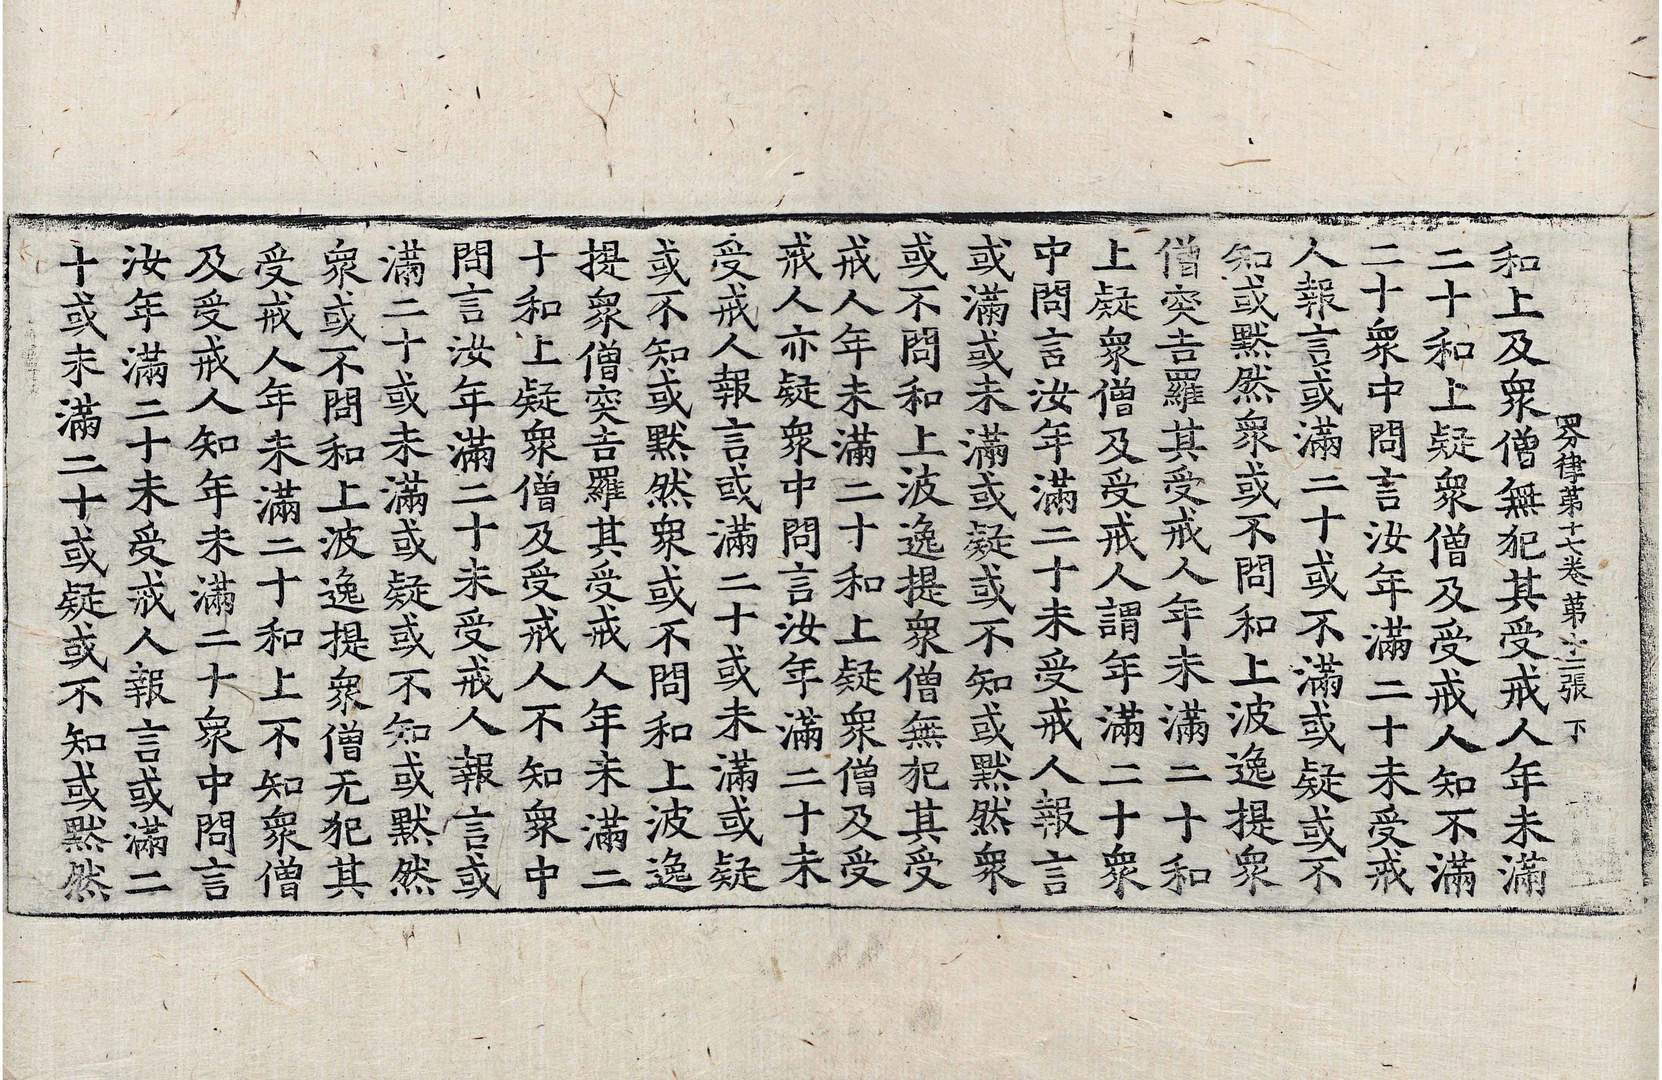 四分律第十七卷 第十二張 下
和上及衆僧無犯其受戒人年未滿
二十和上疑衆僧及受戒人知不滿
二十衆中問言汝年滿二十未受戒
人報言或滿二十或不滿或疑或不
知或默然衆或不問和上波逸提衆
僧突吉羅其受戒人年未滿二十和
上疑衆僧及受戒人謂年滿二十衆
中問言汝年滿二十未受戒人報言
或滿或未滿或疑或不知或默然衆
或不問和上波逸提衆僧無犯其受
戒人年未滿二十和上疑衆僧及受
戒人亦疑衆中問言汝年滿二十未
受戒人報言或滿二十或未滿或疑
或不知或默然衆或不問和上波逸
提衆僧突吉羅其受戒人年未滿二
十和上疑衆僧及受戒人不知衆中
問言汝年滿二十未受戒人報言或
滿二十或未滿或疑或不知或默然
衆或不問和上波逸提衆僧无犯其
受戒人年未滿二十和上不知衆僧
及受戒人知年未滿二十衆中問言
汝年滿二十未受戒人報言或滿二
十或未滿二十或疑或不知或默然